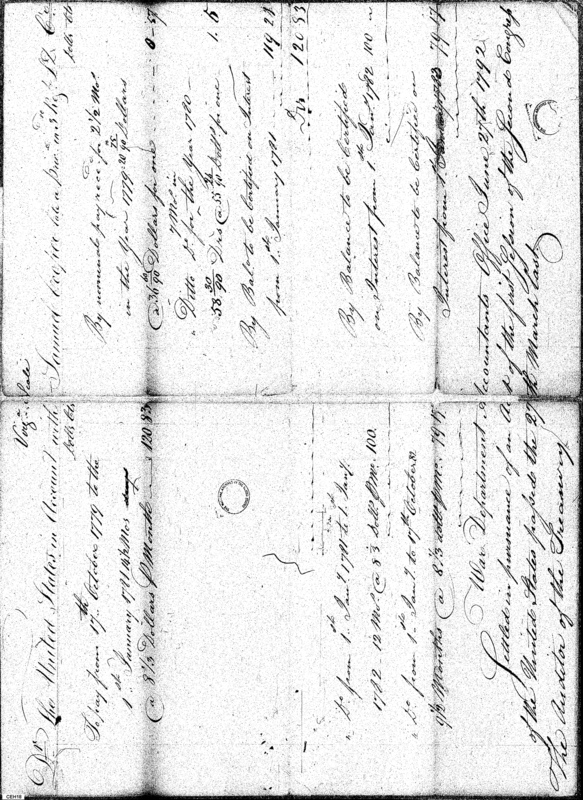 Dr. The United States in Account with Samuel Cr
Virg.a State
Dolls. Cts.
To pay from 17th October 1779 to the
1st January 1781
@ 8 1/3 Dollars p Month 120 83
" Do from 1st Jany 1781 to 1 Jany.
1782 - 12 Mos @ 8 1/3 dolls p Mo. 100.
" Do from 1st Jany to 17th October 82
9 1/2 Months @ 8 1/3 dolls p Mo. 79 17
Cr.
Dolls. Cts.
By nominal pay rec'd for 2 1/2 Mos
in the Year 1779 20 Dollars
@ 36 Dollars for one 0 " 57
" Ditto Do for the Year 1780
58 30/90 Drs @ Dolls for one 1. 15
By Bal. to be Certified on Interest
from 1st January 1781 119 21
Drs 120 83
By Balance to be Certified
on Interest from 1st Jany 1782 100 "
By Balance to be Certified on
Interest from 1st 1783 79 17
War Department Accountants Office June 27th 1792
Settled in pursuance of an Act of the first Session of the Second Congress
of the United States passed the 27th March last
The Auditor of the Treasury
CEH18